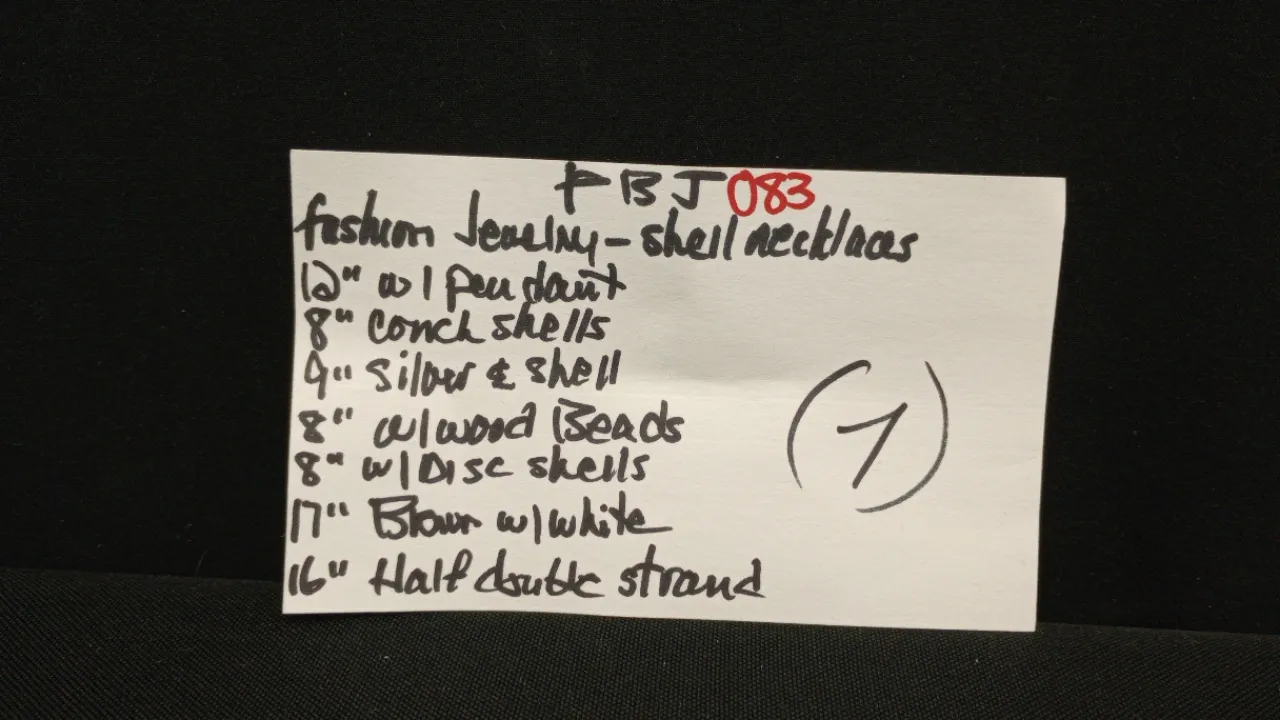 PBJ 083
fashion Jewelry - shell necklaces
12" w/ pendant
8" conch shells
9" Silver & shell
8" w/ wood Beads
8" w/ Disc shells
17" Brown w/ white
16" Half double strand
(7)